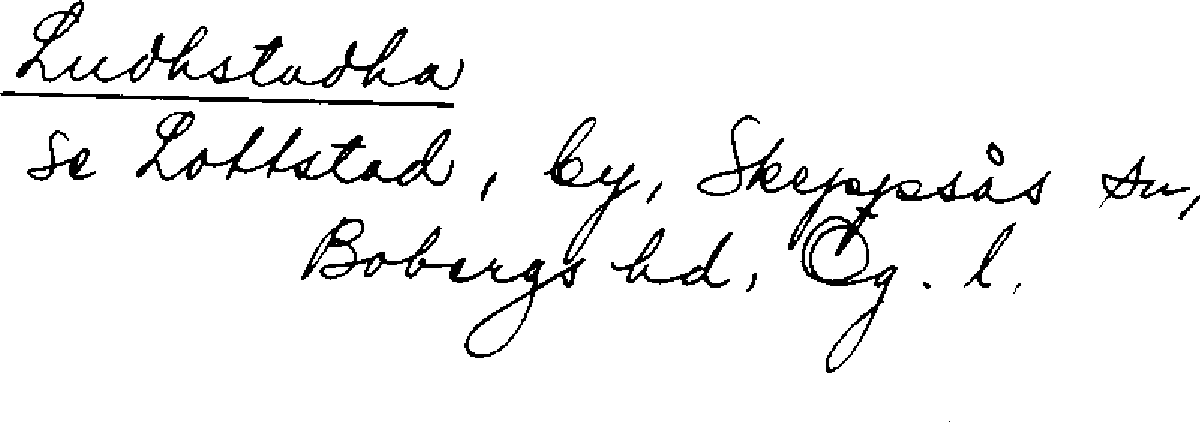 Ludhstadha
se Lottstad, by, Skeppsås sn,
Bobergs hd, Ög. l.